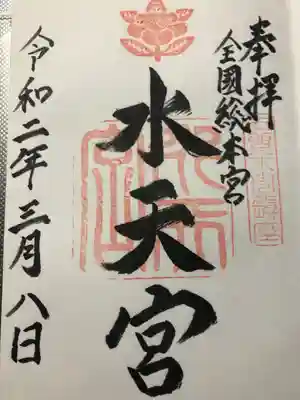 奉拝
全国総本宮
水天宮
令和二年三月八日